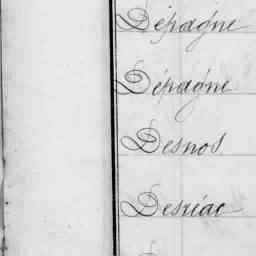 Dépagne
Dépagne
Desnos
Desriac